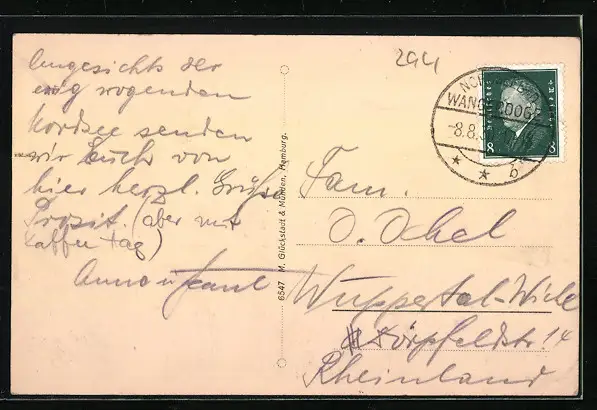 294
Angesichts der
ewg wogenden
Nordsee senden
wir Euch von
hier herzl. Grüße
Prosit. (aber nur
Kaffee tag)
Anno u. Paul
6547 M. Glückstadt & Münden, Hamburg.
NORDSEEBAD
WANGEROOGE
-8.8.
b
8 8
Fam.
O. Ochel
Wuppertal-
Dörpfeldstr. 14
Rheinland